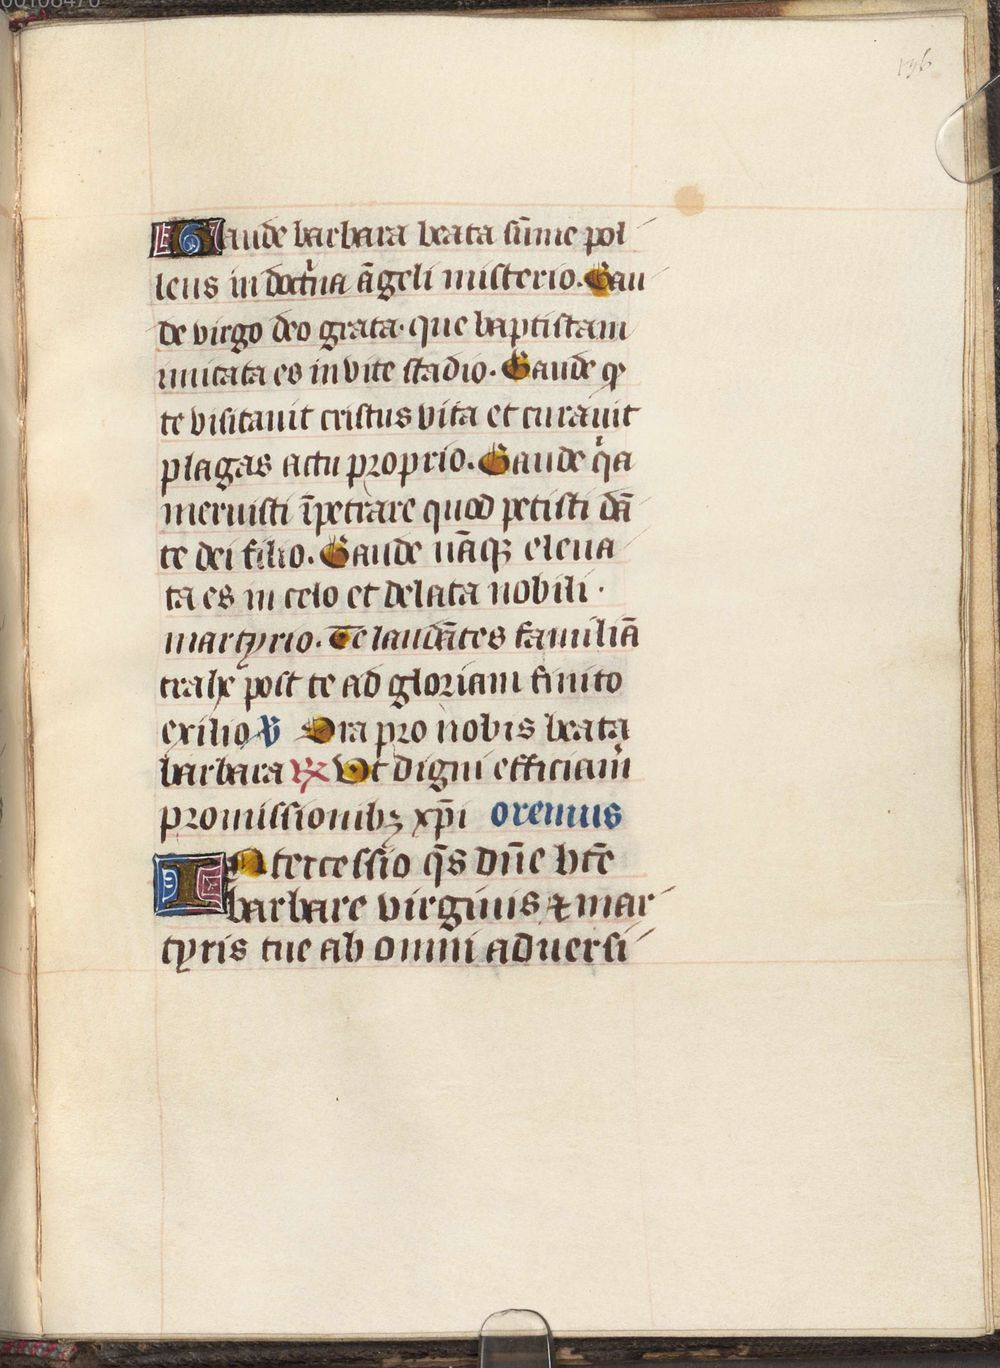 196
Gaude barbara beata sūme pol
lens in doctͥna āgeli misterio. Gau
de virgo deo grata. que baptistam
imitata es in vite stadio. Gaude ꝙ
te visitauit cristus vita et curauit
plagas actu proprio. Gaude qͥa
meruisti īpetrare quod petisti dā
te dei filio. Gaude nāqꝫ eleua
ta es in celo et delata nobili.
martyrio. Te laudātes familiā
trahe post te ad gloriam finito
exilio ℣ Ora pro nobis beata
barbara ℟ Ut digni efficiamͥ
promissionibꝫ xp̄i oremus
INtercessio q̄s dn̄e btē
barbare virginis ⁊ mar
tyris tue ab omni aduersi